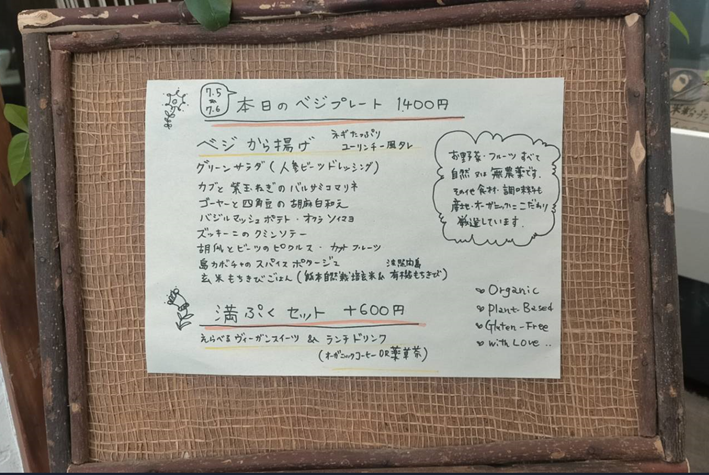 7.5
7.6
本日のベジプレート 1400円
ベジから揚げ
ネギたっぷり
ユーリンチー風タレ
グリーンサラダ(人参ビーツドレッシング)
カブと紫玉ねぎのバルサミコマリネ
ゴーヤーと四角豆の胡麻白和え
バジルマッシュポテト・オクラソイマヨ
ズッキーニのクミンソテー
胡瓜とビーツのピクルス・カットフルーツ
島カボチャのスパイスポタージュ
玄米もちきびごはん(熊本自然栽培玄米& 有機もちきび)
満ぷくセット +600円
えらべるヴィーガンスイーツ & ランチドリンク
(オーガニックコーヒー OR 薬草茶)
お野菜・フルーツすべて
自然又は無農薬です。
その他食材・調味料も
産地・オーガニックにこだわり
厳選しています。
Organic
Plant-Based
Gluten-Free
with Love..